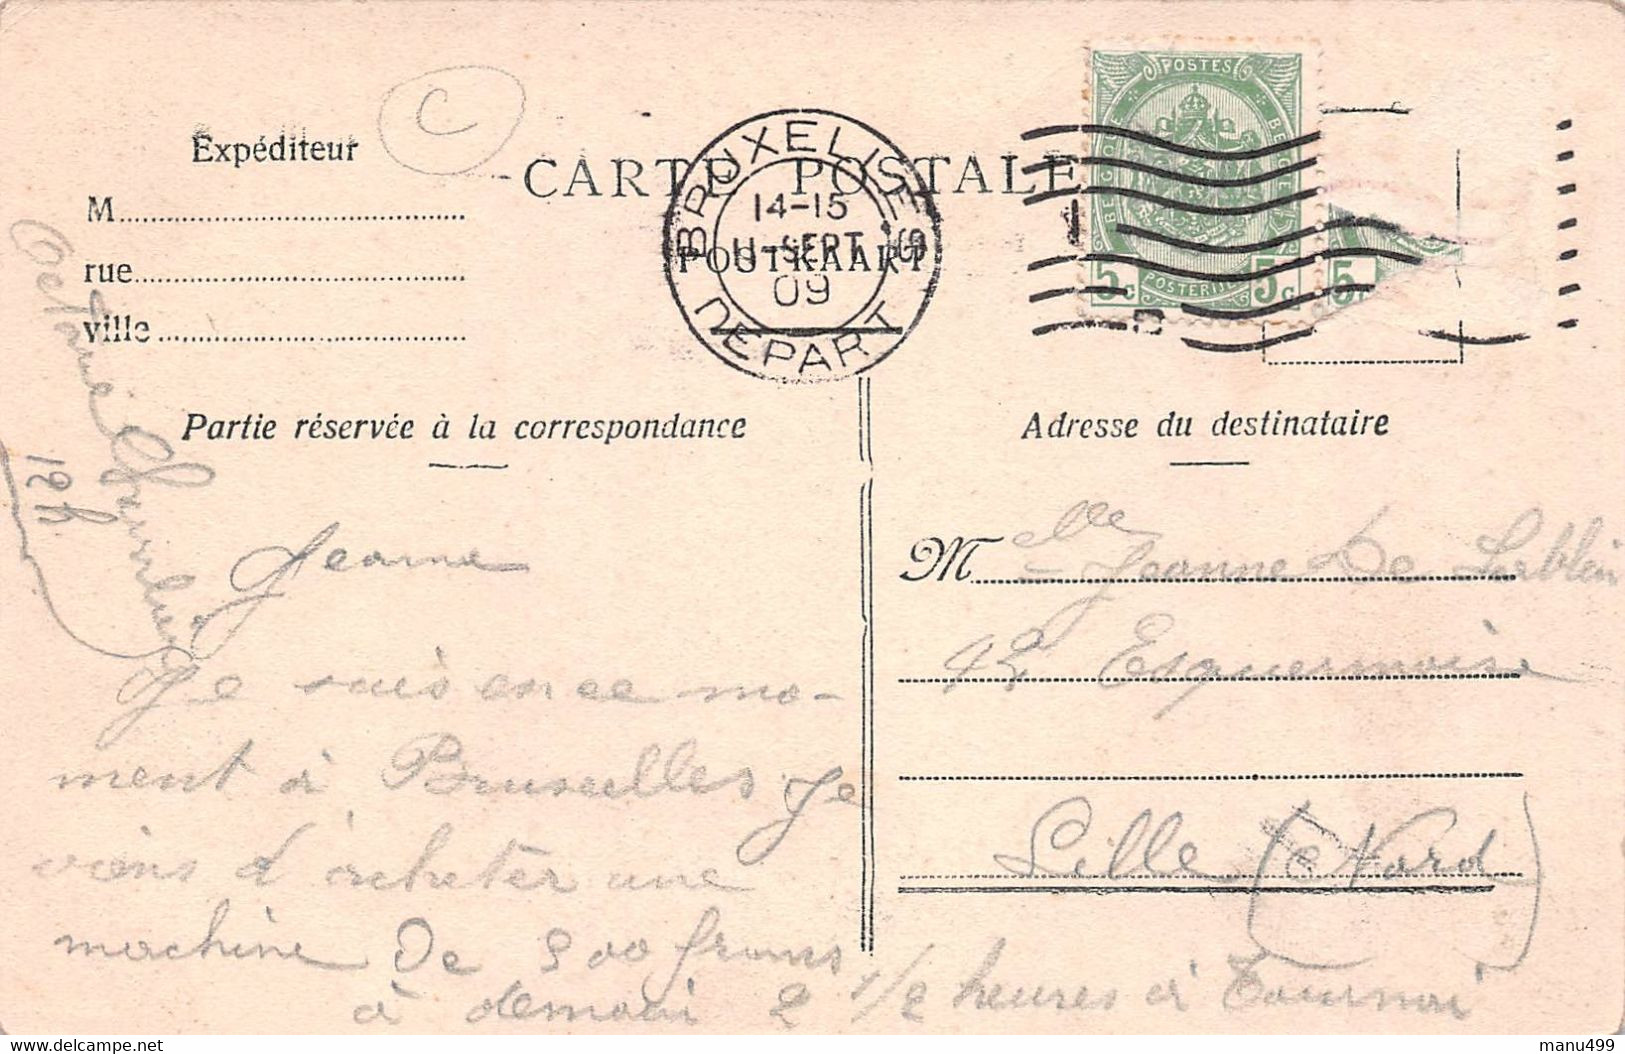 C
Expéditeur
M
rue
ville
CARTE POSTALE
POSTKAART
BRUXELLES
14-15
11-SEPT
09
DEPART
POSTES
BELGIQUE
BELGIE
5c
POSTERIJEN
5c
5c
Partie réservée à la correspondance
Adresse du destinataire
Octavie
12h
Jeanne
Je suis en ce mo-
ment à Bruxelles Je
viens d'acheter une
machine De 500 francs
à demain 2 1/2 heures à Tournai
Melle Jeanne De
42 Esquermoise
Lille (Nord)
manu499